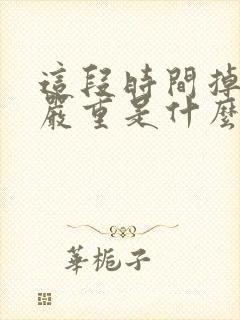 這段時間掉
嚴重是什麼
華梔子